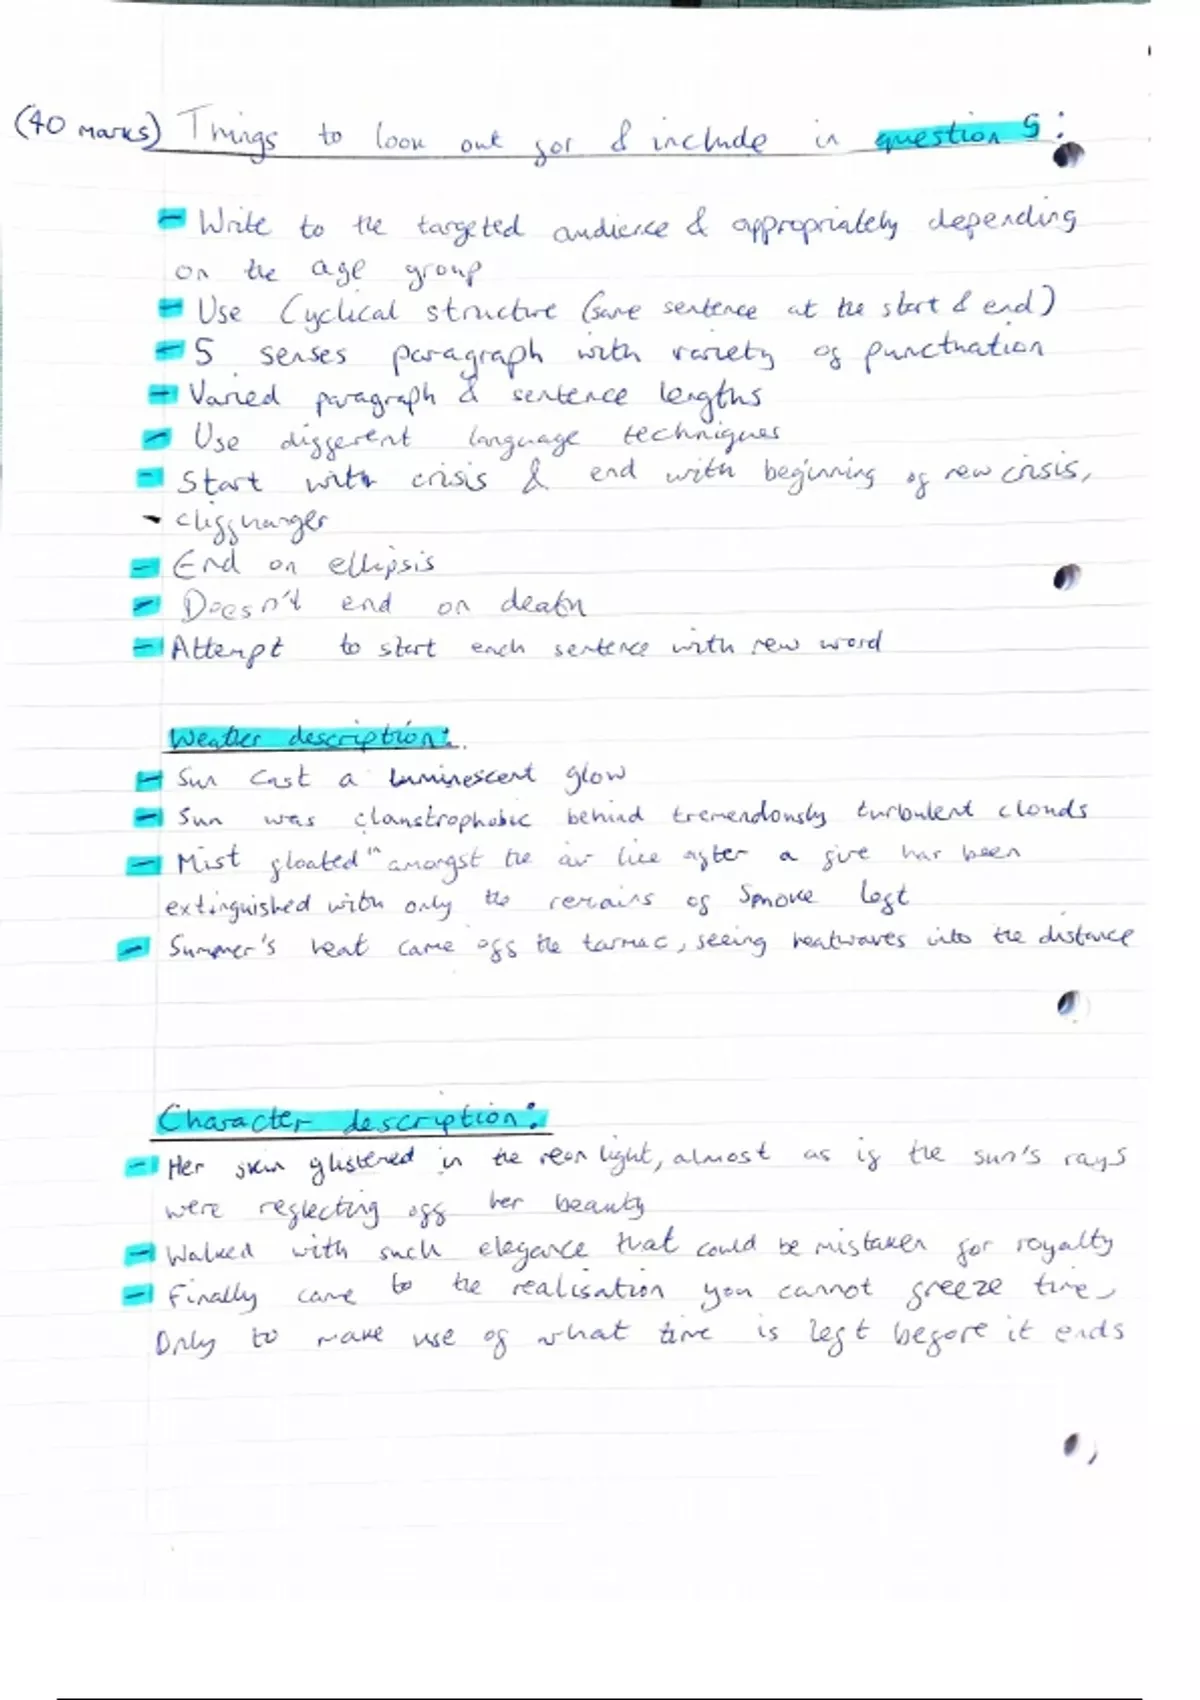 (40 marks) Things to look out for & include in question 5:
- Write to the targeted audience & appropriately depending
on the age group
- Use Cyclical structure (same sentence at the start & end)
- 5 senses paragraph with variety of punctuation
- Varied paragraph & sentence lengths
- Use different language techniques
- Start with crisis & end with beginning of new crisis,
- cliffhanger
- End on ellipsis
- Doesn't end on death
- Attempt to start each sentence with new word
Weather description:
- Sun cast a luminescent glow
- Sun was claustrophobic behind tremendously turbulent clouds
- Mist floated in amongst the air like after a fire has been
extinguished with only the remains of smoke left
- Summer's heat came off the tarmac, seeing heatwaves into the distance
Character description:
- Her skin glistered in the neon light, almost as if the sun's rays
were reflecting off her beauty
- Walked with such elegance that could be mistaken for royalty
- Finally came to the realisation you cannot freeze time,
Only to make use of what time is left before it ends